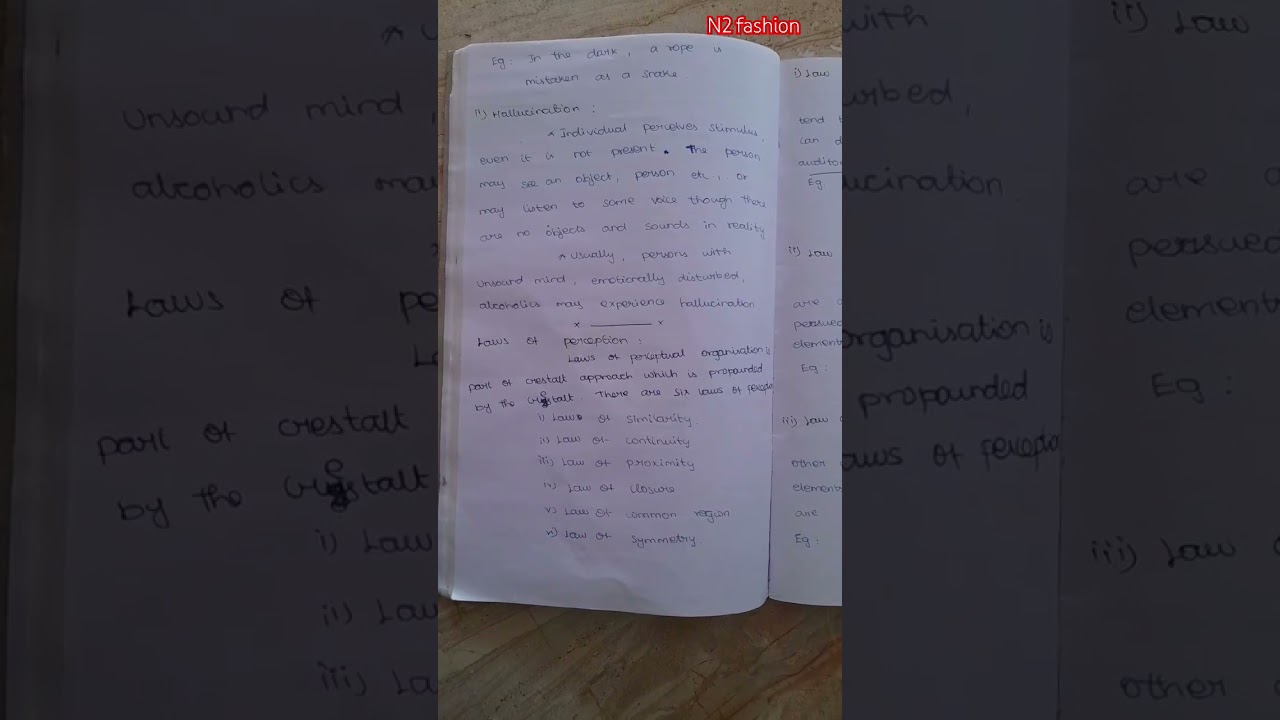 N2 fashion
Eg: In the dark, a rope is
mistaken as a snake.
ii) Hallucination :
* Individual perceives stimulus,
even it is not present. The person
may see an object, person etc., or
may listen to some voice though there
are no objects and sounds in reality
* Usually, persons with
unsound mind, emotionally disturbed,
alcoholics may experience hallucination
x ———— x
Laws of perception :
Laws of perceptual organisation is
part of Grestalt approach which is propounded
by the Grestalt. There are six laws of
i) Law of similarity.
ii) Law of continuity
iii) Law of proximity
iv) Law of closure
v) Law of common region
vi) Law of symmetry.
i) Law
tend
can
auditor
Eg
ii) Law
are
persued
element
Eg :
iii) Law
other
element
are
Eg :